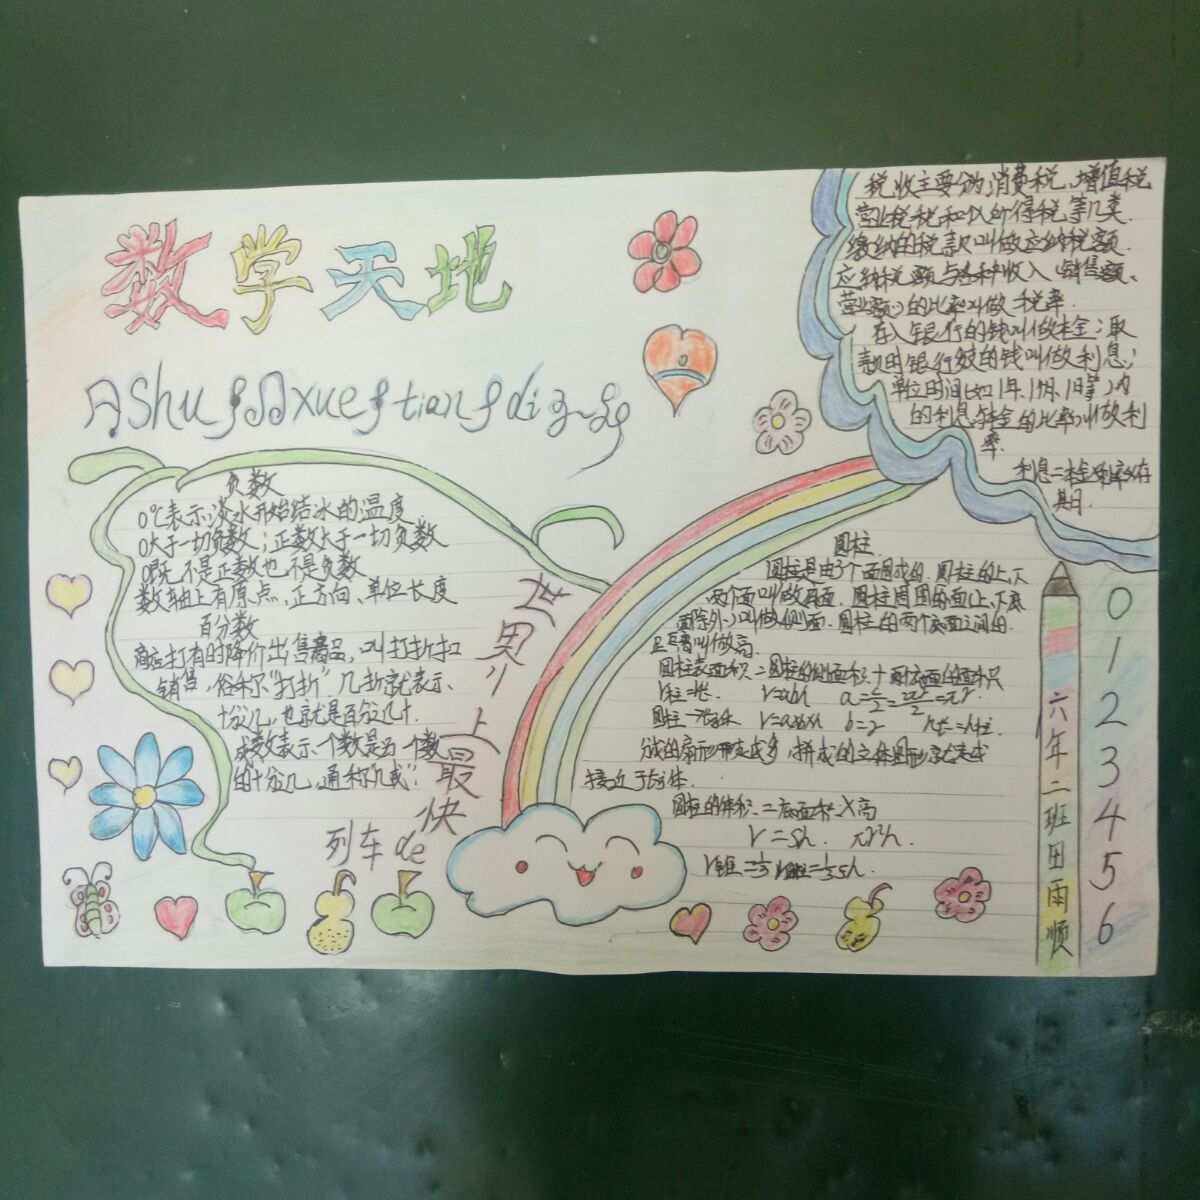 数学天地
shu xue tian di
税收主要分为消费税、增值税
营业税和个人所得税等几类.
缴纳的税款叫做应纳税额.
应纳税额与各种收入(销售额、
营业额)的比率叫做税率.
存入银行的钱叫做本金;取
款时银行给的钱叫做利息;
单位时间(如1年、1月、1日等)内
的利息与本金的比率叫做利
率.
利息=本金×利率×存
负数
0℃表示淡水开始结冰的温度
0大于一切负数;正数大于一切负数
0既不是正数也不是负数
数轴上有原点,正方向、单位长度
百分数
商店打有时降价出售商品,叫打折扣
销售,俗称"打折".几折就表示
十分几,也就是百分几十.
成数表示一个数是另一个数
的十分几,通称"几成".
世界上最快
列车de
圆柱.
圆柱是由3个面围成的.圆柱的上、下
两个面叫做底面.圆柱周围的面(上、下底
面除外)叫做侧面.圆柱的两个底面之间的
距离叫做高.
圆柱表面积=圆柱的侧面积+两个底面的面积
V=abh
分成的扇形越多,拼成的立体图形就越
接近于长方体.
圆柱的体积=底面积×高
V=sh. πr²h.
六年二班田雨顺
0
1
2
3
4
5
6